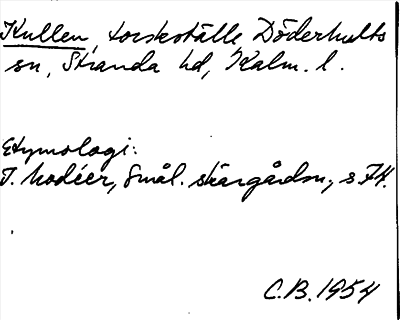 Kullen, torskställe Döderhults
sn, Stranda hd, Kalm. l.
Etymologi:
I. Modéer, Smål. skärgårdsn., s 74.
C.B. 1954